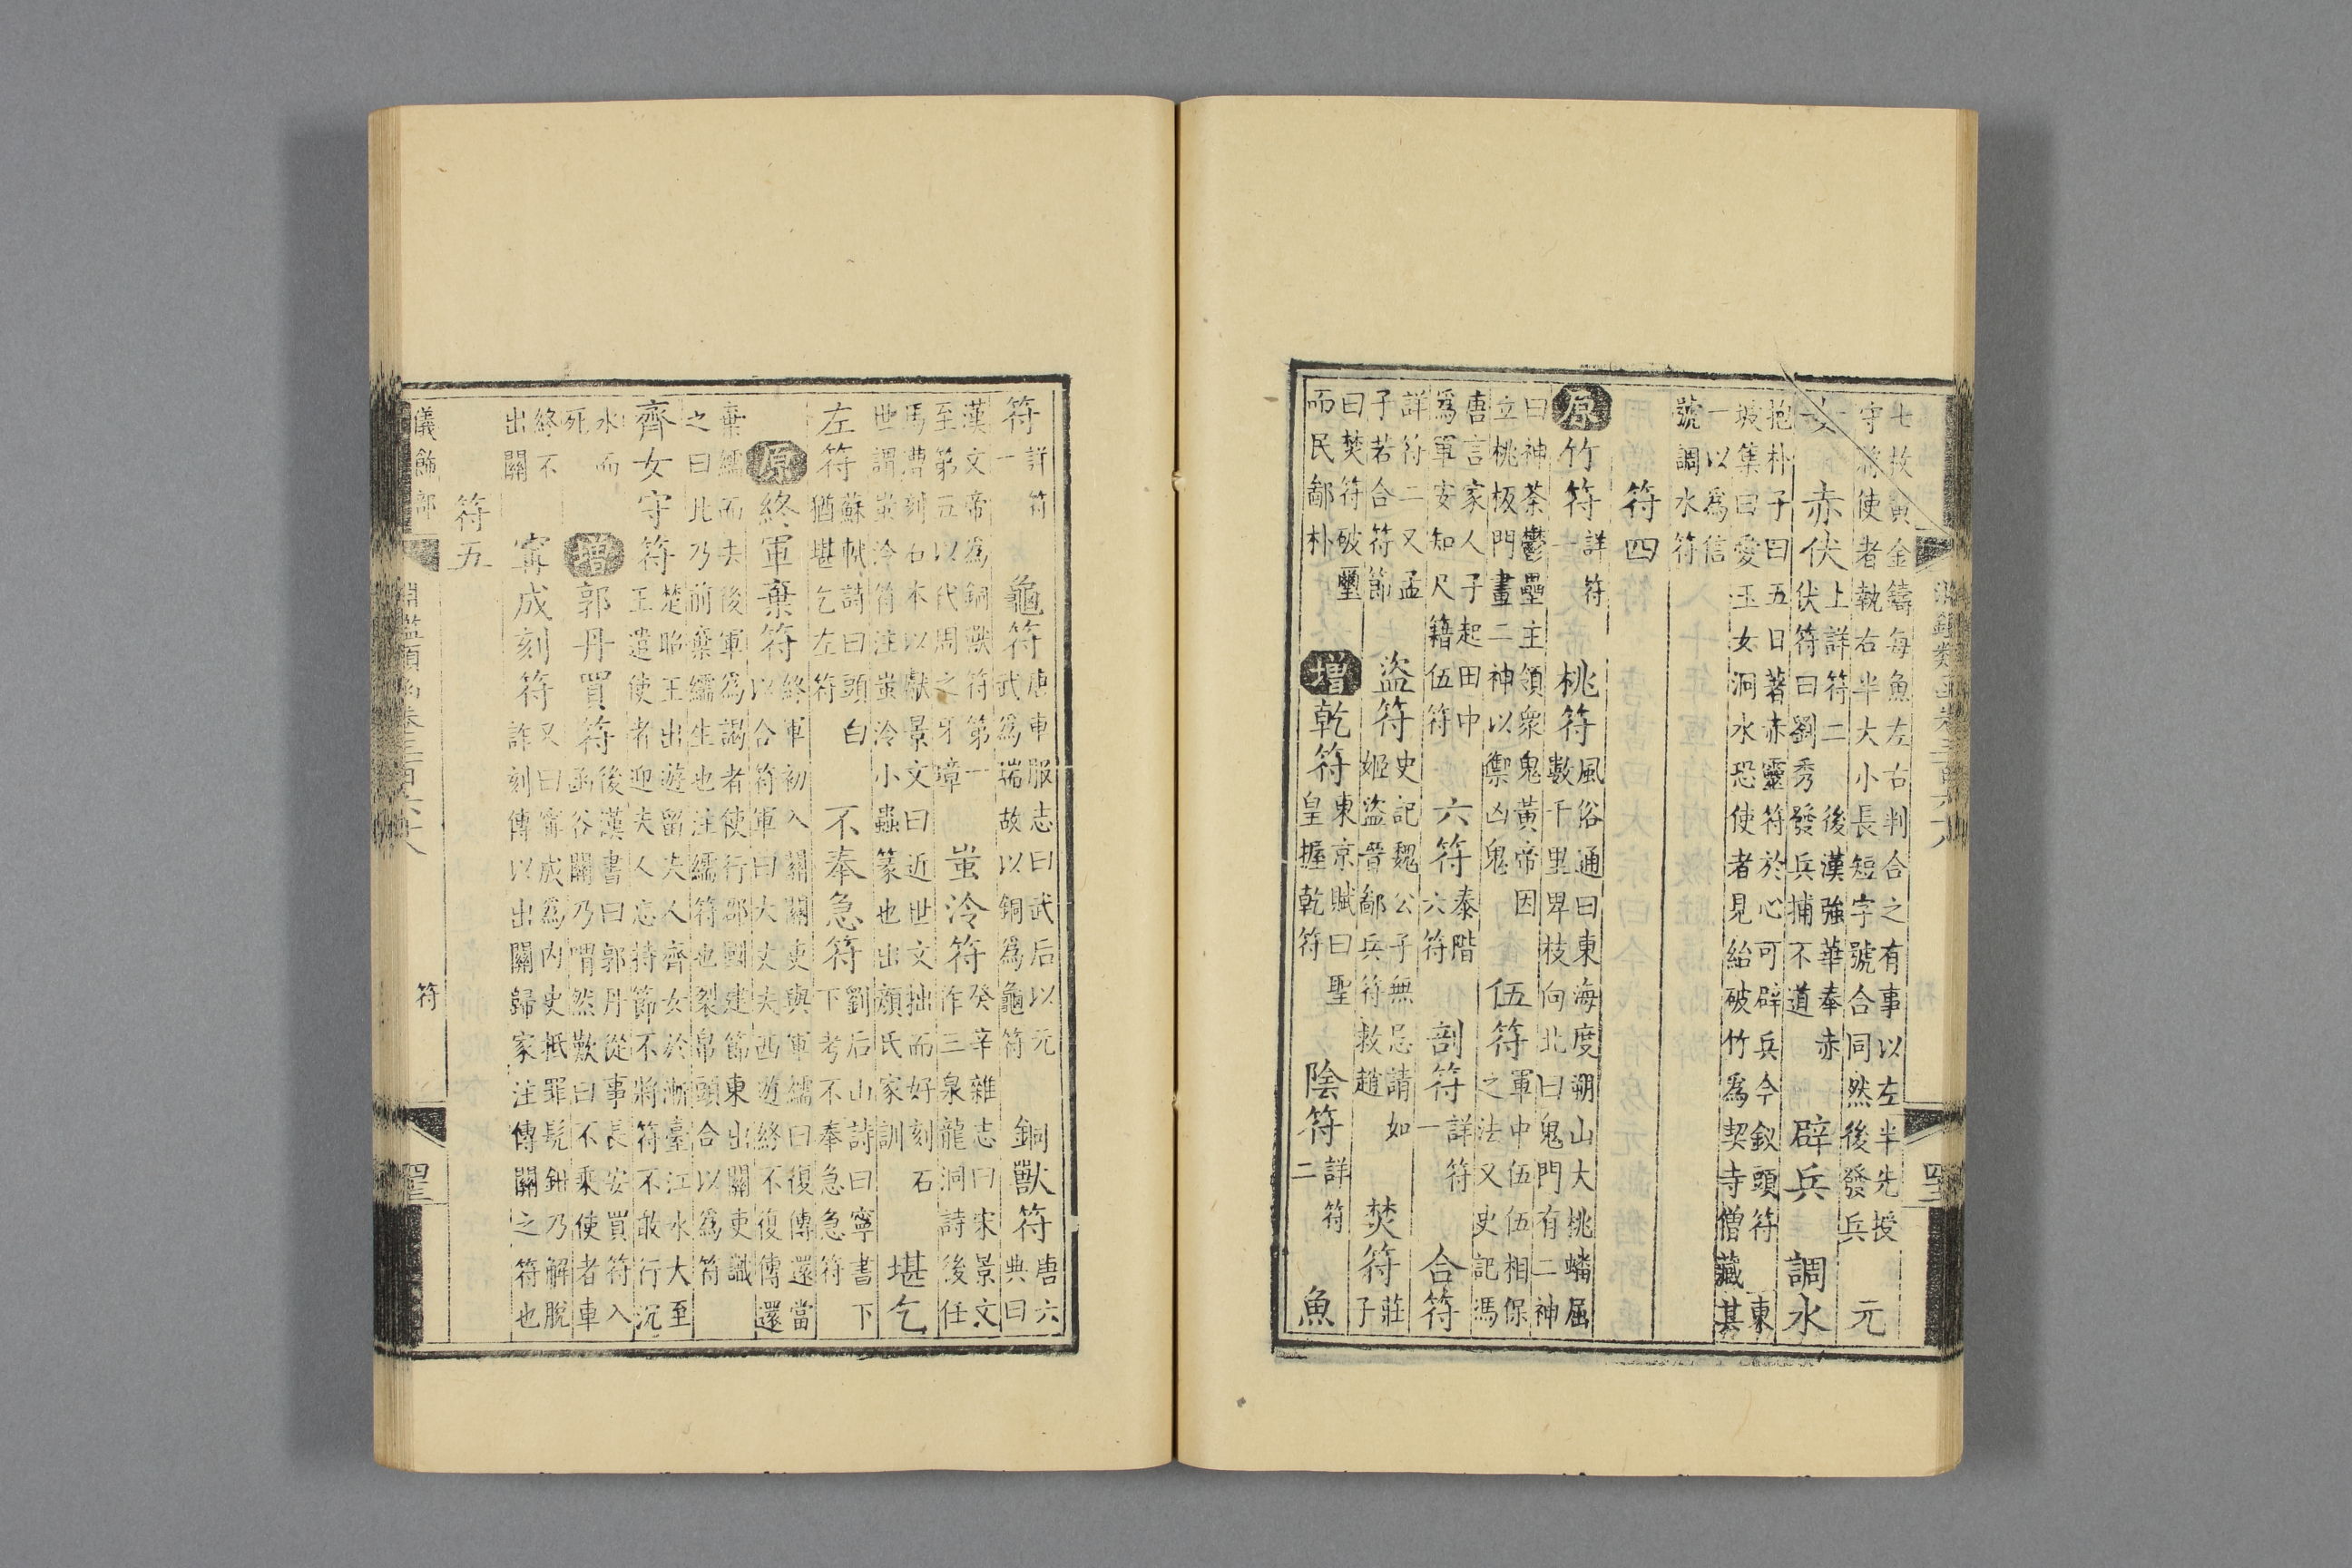 七枚黃金鑄每魚左右判合之有事以左半先授
守將使者執右半大小長短字號合同然後發兵 元
女 赤伏上詳符二 後漢強華奉赤伏符曰劉秀發兵捕不道 辟兵 調水
抱朴子曰五日著赤靈符於心可辟兵今釵頭符 東
坡集曰愛玉女洞水恐使者見紿破竹為契寺僧藏其
一以為信
號調水符
符四
原 竹符詳符一 桃符風俗通曰東海度朔山大桃蟠屈數千里卑枝向北曰鬼門有二神
曰神荼鬱壘主領衆鬼黃帝因
立桃板門畫二神以禦凶鬼 伍符軍中伍伍相保之法又史記馮
唐言家人子起田中
為軍安知尺籍伍符 六符泰階六符 剖符詳符一 合符
詳符二又孟
子若合符節 盜符史記魏公子無忌請如姬盜晉鄙兵符救趙 焚符莊子
曰焚符破璽
而民鄙朴 增 乾符東京賦曰聖皇握乾符 陰符詳符二 魚
符詳符一 龜符唐車服志曰武后以元武為瑞故以銅為龜符 銅獸符唐六典曰
漢文帝為銅獸符第一
至第五以代周之牙璋 蚩泠符癸辛雜志曰宋景文作三泉龍洞詩後任
馬曹刻石本以獻景文曰近世文拙而好刻石
世謂蚩泠符注蚩泠小蟲篆也出顏氏家訓 堪乞
左符蘇軾詩曰頭白猶堪乞左符 不奉急符劉后山詩曰寧書下下考不奉急急符
原 終軍棄符終軍初入關關吏與軍繻曰復傳還當以合符軍曰大丈夫西遊終不復傳還
棄繻而去後軍為謁者使行郡國建節東出關吏識
之曰此乃前棄繻生也注繻符也裂帛頭合以為符
齊女守符楚昭王出遊留夫人齊女於漸臺江水大至王遣使者迎夫人忘持節不將符不敢行沉
水而
死 增 郭丹買符後漢書曰郭丹從事長安買符入函谷關乃喟然歎曰不乘使者車
終不
出關 甯成刻符又曰甯成為內史抵罪髡鉗乃解脫詐刻傳以出關歸家注傳關之符也
符五
儀飾部 淵鑑類函卷三百六十八 符